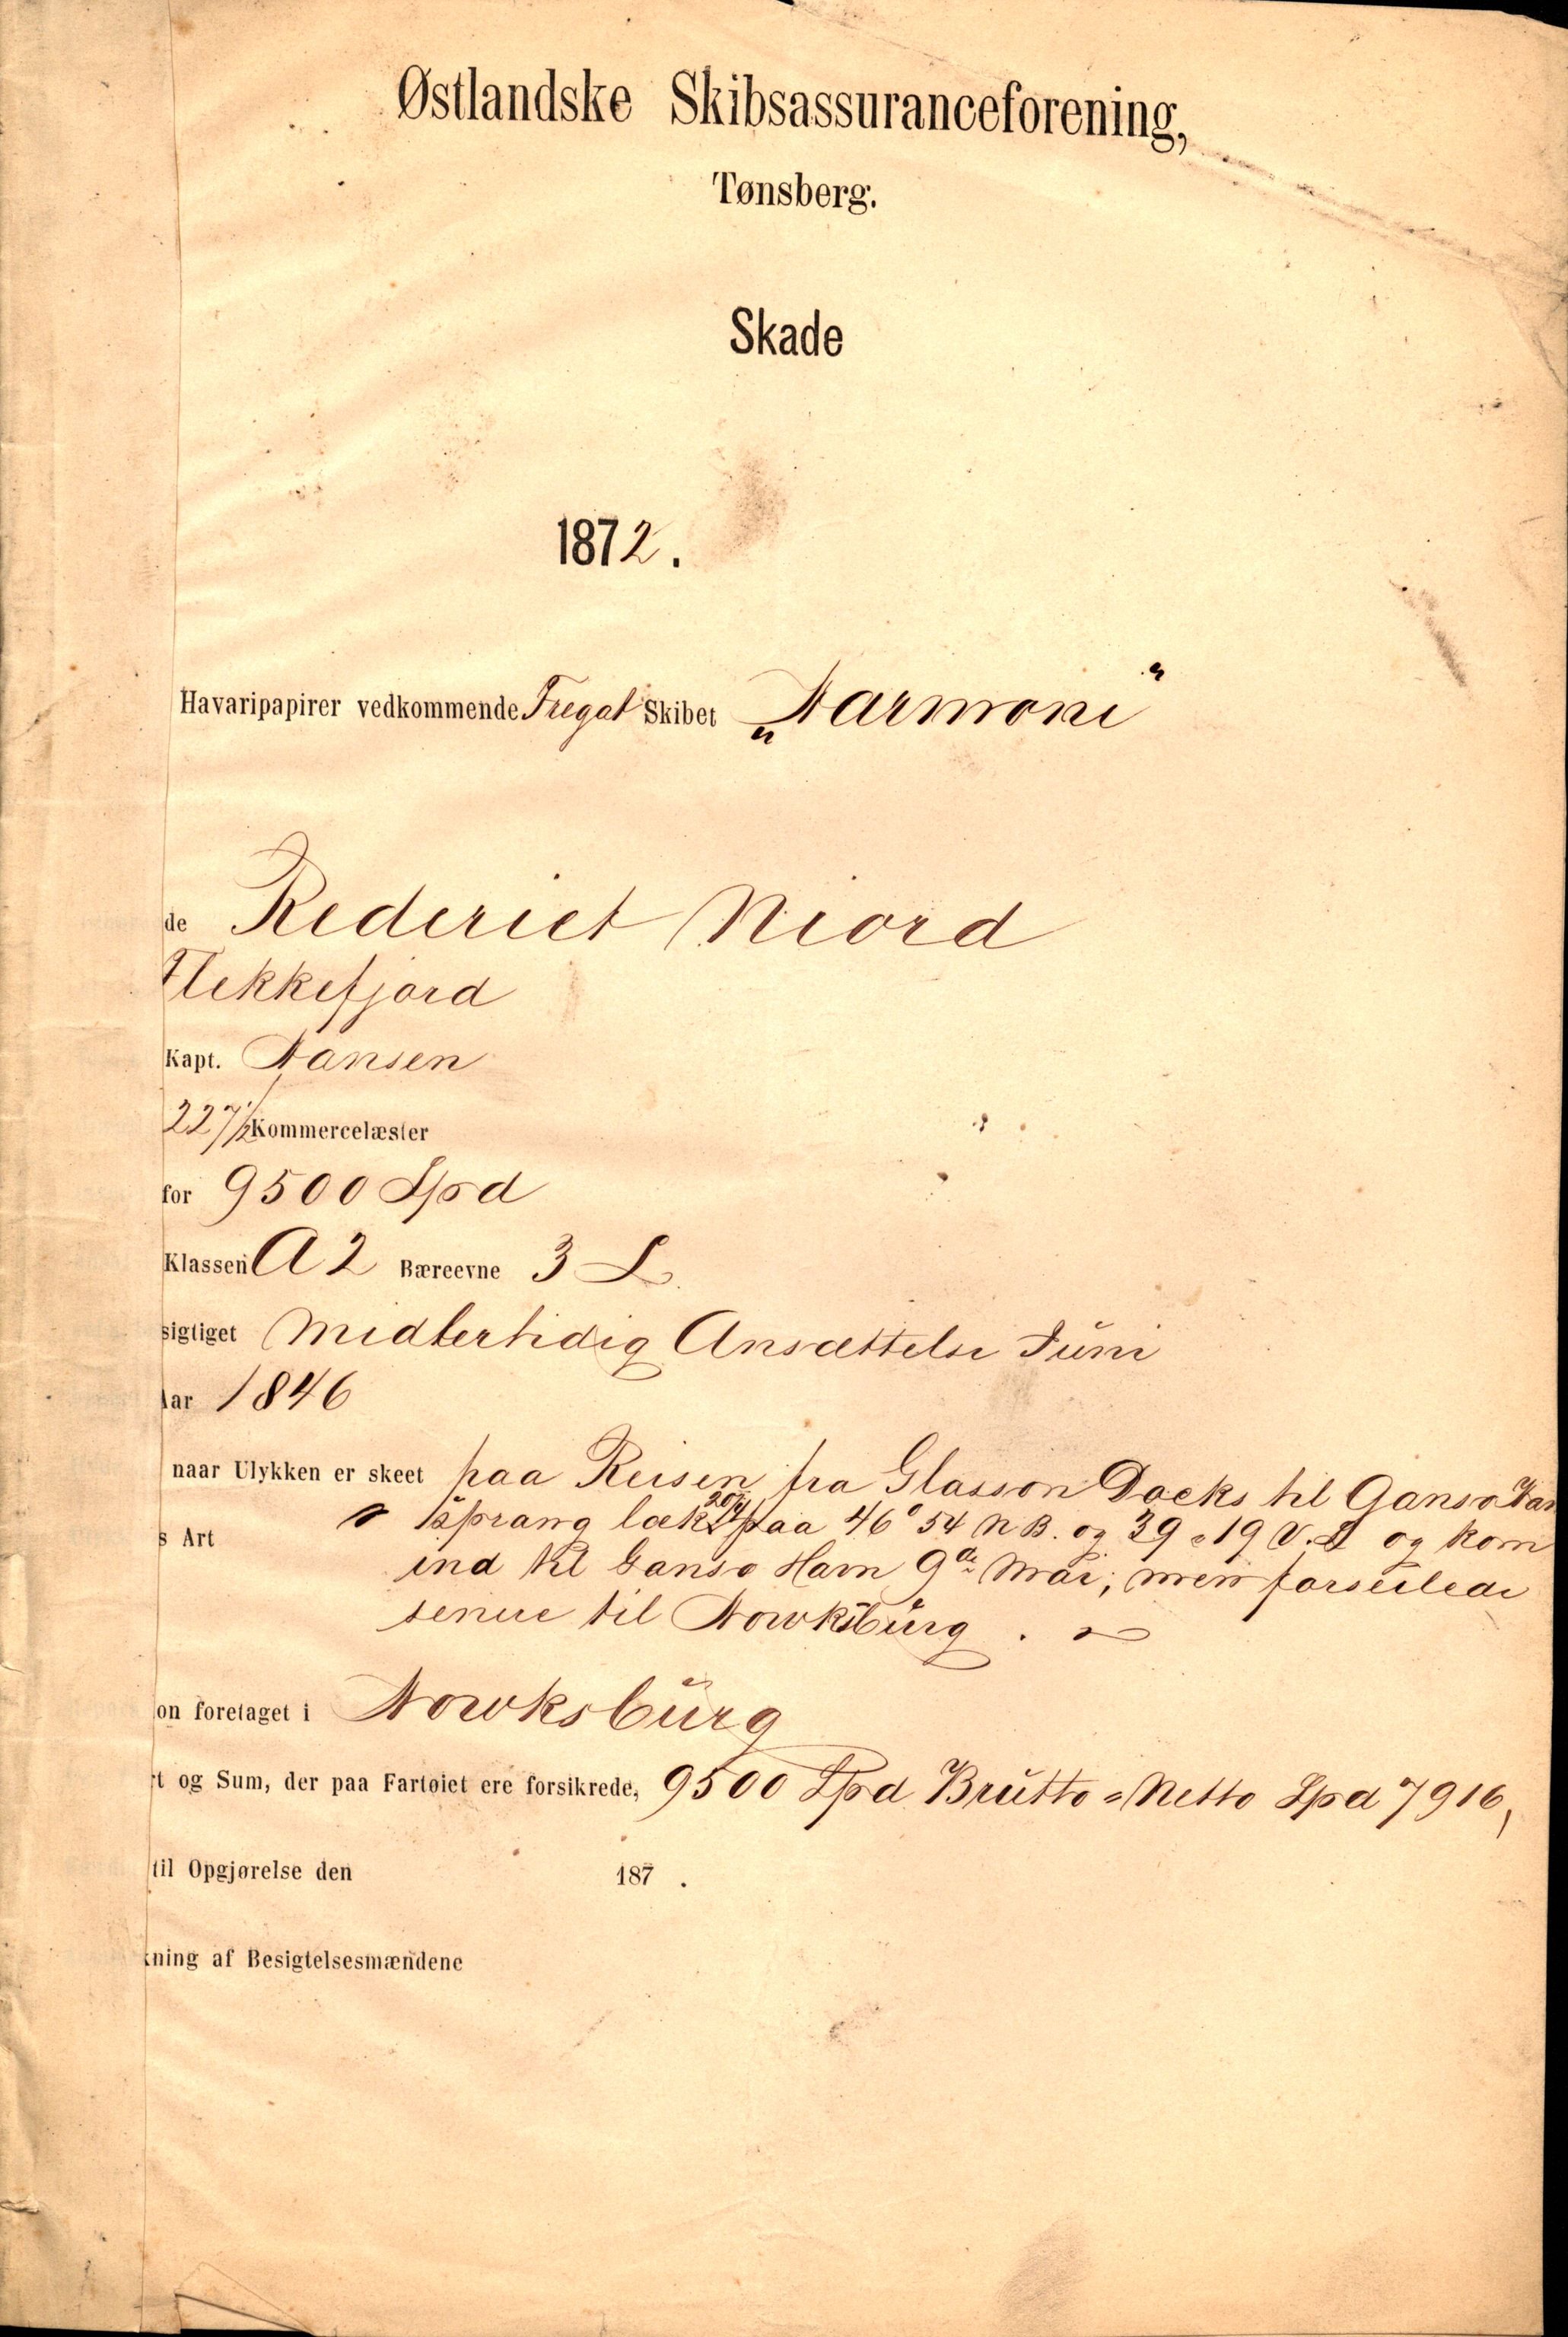 Østlandske Skibsassuranceforening,
Tønsberg.
Skade
1872.
Havaripapirer vedkommende Fregat Skibet „Harmoni“
de Rederiet Niord
Flekkefjord
Kapt. Hansen
227 1/2 Kommercelæster
for 9500 Spd
Klassen A 2 Bæreevne 3 L
sigtiget Midlertidig Ansættelse Juni
Aar 1846
naar Ulykken er skeet paa Reisen fra Glasson Docks til Ganso
s Art sprang læk 20/4 paa 46° 54 N B. og 39 19 V. L og kom
ind til Ganso Havn 9de Mai; men forseilede
senere til Howksbúrg.
on foretaget i Howksbúrg
rt og Sum, der paa Fartøiet ere forsikrede, 9500 Spd Brutto = Netto Spd 7916,
til Opgjørelse den 187 .
kning af Besigtelsesmændene